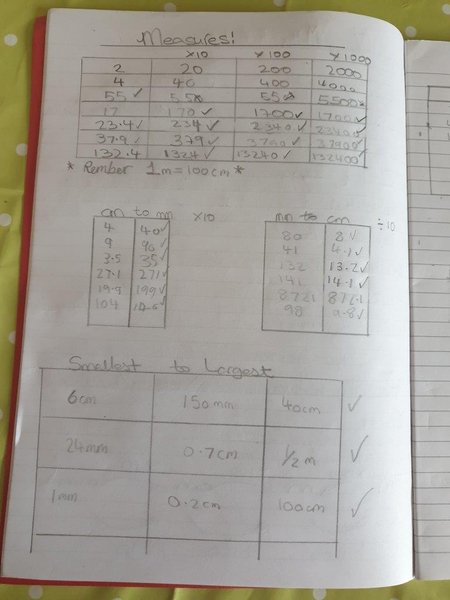 Measures!
x10 x100 x1000
2 20 200 2000
4 40 400 4000
55 ✓ 55x 55x 5500x
17 170 ✓ 1700 ✓ 1700 ✓
23.4 ✓ 234 ✓ 2340 ✓ 2340 ✓
37.9 ✓ 379 ✓ 3790 ✓ 3790 ✓
132.4 1324 ✓ 13240 ✓ 132400 ✓
* Rember 1m = 100cm *
cm to mm x10
4 40 ✓
9 90 ✓
3.5 35 ✓
27.1 271 ✓
19.9 199 ✓
104
mm to cm ÷10
80 8 ✓
41 4.1 ✓
132 13.2 ✓
141 14.1 ✓
8721 872.1
98 9.8 ✓
Smallest to Largest
6cm 150mm 40cm ✓
24mm 0.7cm 1/2 m ✓
1mm 0.2cm 100cm ✓